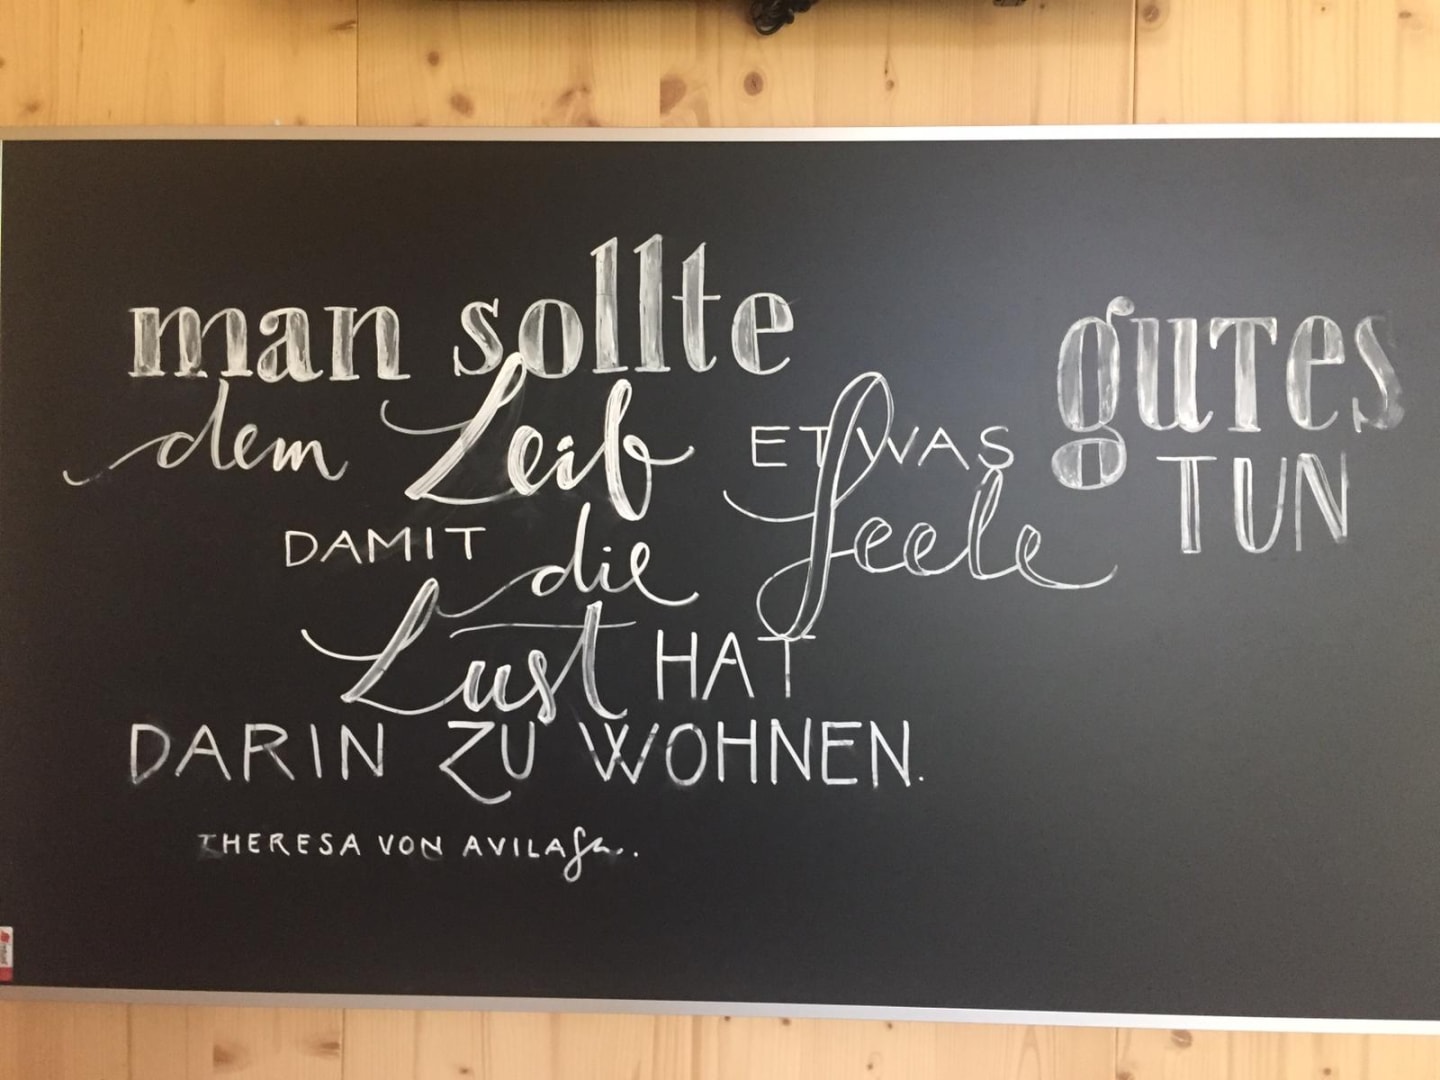 man sollte gutes
dem Leib ETWAS TUN
DAMIT die Seele
Lust HAT
DARIN ZU WOHNEN.
THERESA VON AVILA